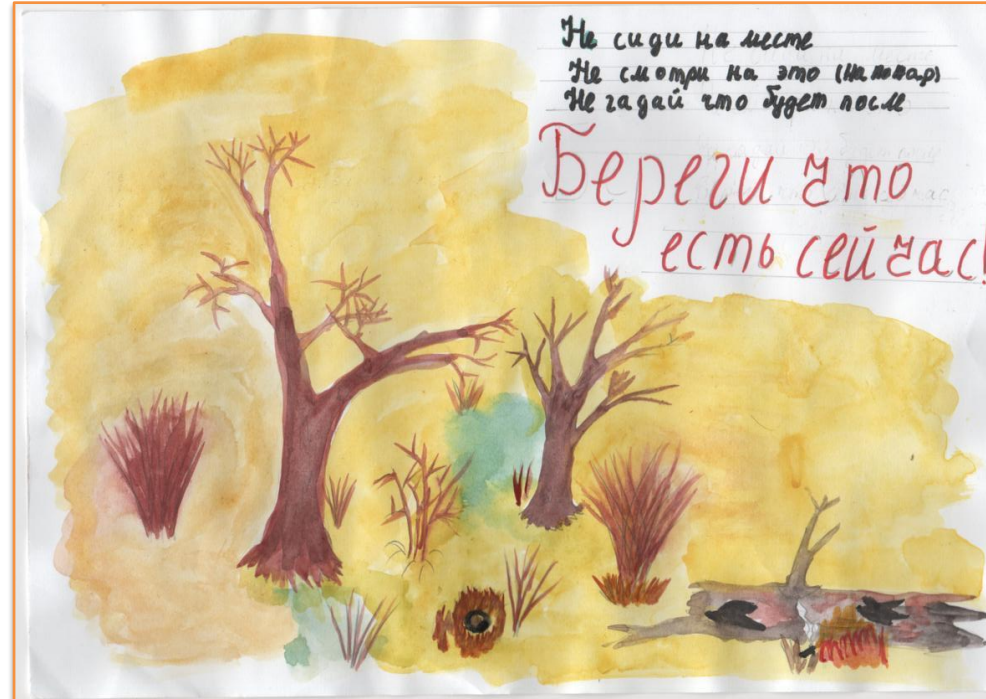 Не сиди на месте
Не смотри на это (на пожар)
Не гадай что будет после
Береги что
есть сейчас!